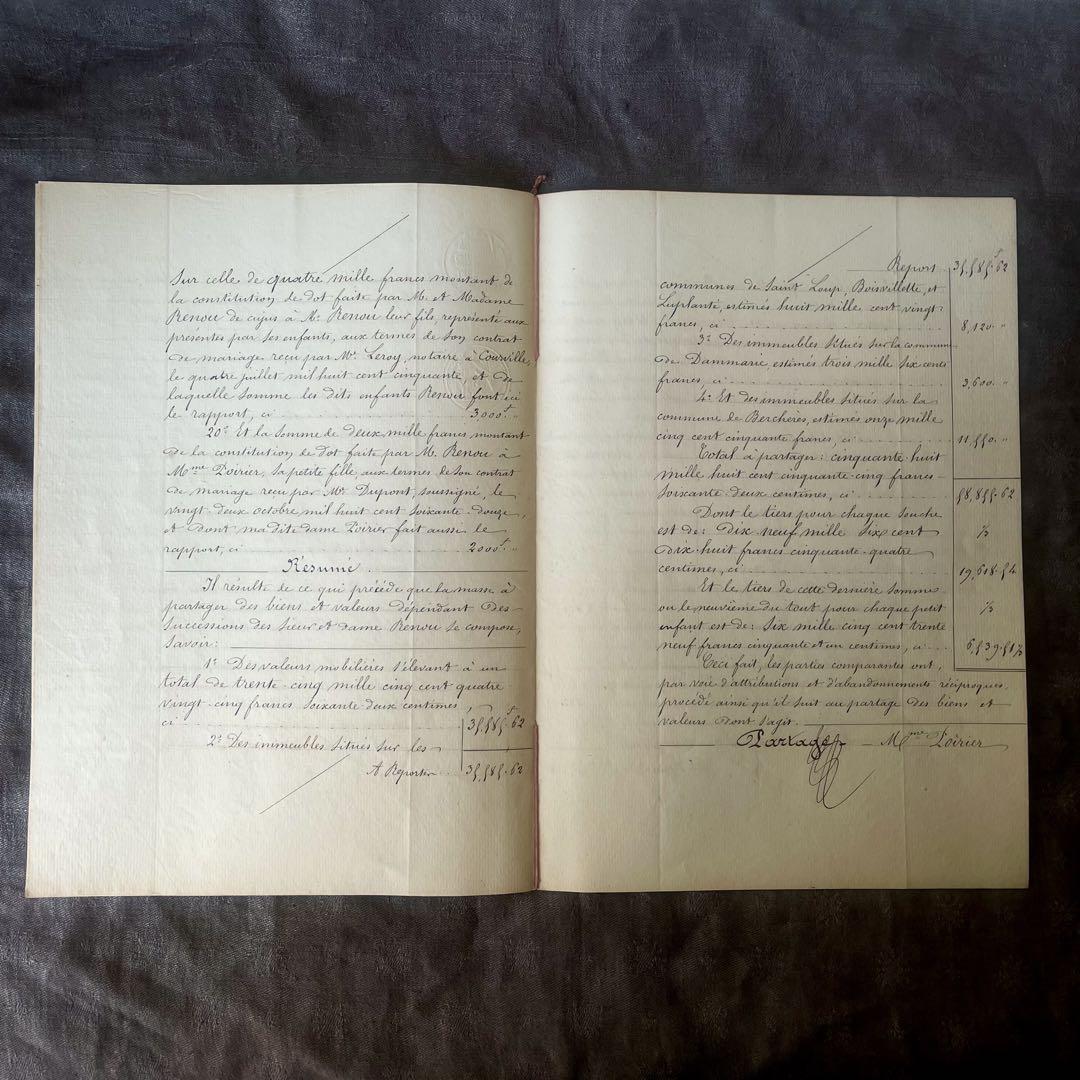 Sur celle de quatre mille francs montant de
la constitution de dot faite par M. et Madame
Renou de cujus à Mr. Renou leur fils, représenté aux
présentes par ses enfants, aux termes de son contrat
de mariage reçu par Me. Leroy, notaire à Courville,
le quatre juillet mil huit cent cinquante, et de
laquelle somme les dits enfants Renou font ici
le rapport, ci 3,000f "
20° Et la somme de deux mille francs montant
de la constitution de dot faite par M. Renou à
Mme Poirier, sa petite fille aux termes de son contrat
de mariage reçu par Me. Dupont, soussigné, le
vingt deux octobre mil huit cent soixante-douze,
et dont ma dite dame Poirier fait aussi le
rapport, ci 2000f "
Résumé.
Il résulte de ce qui précède que la masse à
partager des biens et valeurs dépendant des
successions des sieur et dame Renou se compose,
savoir:
1° Des valeurs mobilières s'élevant à un
total de trente-cinq mille cinq cent quatre
vingt-cinq francs soixante deux centimes,
ci 35,585f 62
2° Des immeubles situés sur les
A Reporter 35,585. 62
Report 35,585f 62
communes de Saint Loup, Boisvillette, et
Luplanté, estimés huit mille cent vingt
francs, ci 8,120. "
3° Des immeubles situés sur la commune
de Dammarie, estimés trois mille six cents
francs, ci 3,600. "
4° Et des immeubles situés sur la
commune de Berchères, estimés onze mille
cinq cent cinquante francs, ci 11,550. "
Total à partager: cinquante-huit
mille huit cent cinquante-cinq francs
soixante-deux centimes, ci 58,855. 62
Dont le tiers pour chaque souche
est de: Dix neuf mille six cent 1/3
dix-huit francs cinquante-quatre
centimes, ci 19,618. 54
Et le tiers de cette dernière somme
ou le neuvième du tout pour chaque petit 1/3
enfant est de: Six mille cinq cent trente
neuf francs cinquante et un centimes, ci 6,539. 51 1/3
Ceci fait, les parties comparantes ont,
par voie d'attributions et d'abandonnements réciproques,
procédé ainsi qu'il suit au partage des biens et
valeurs dont s'agit.
Partage – Mme Poirier